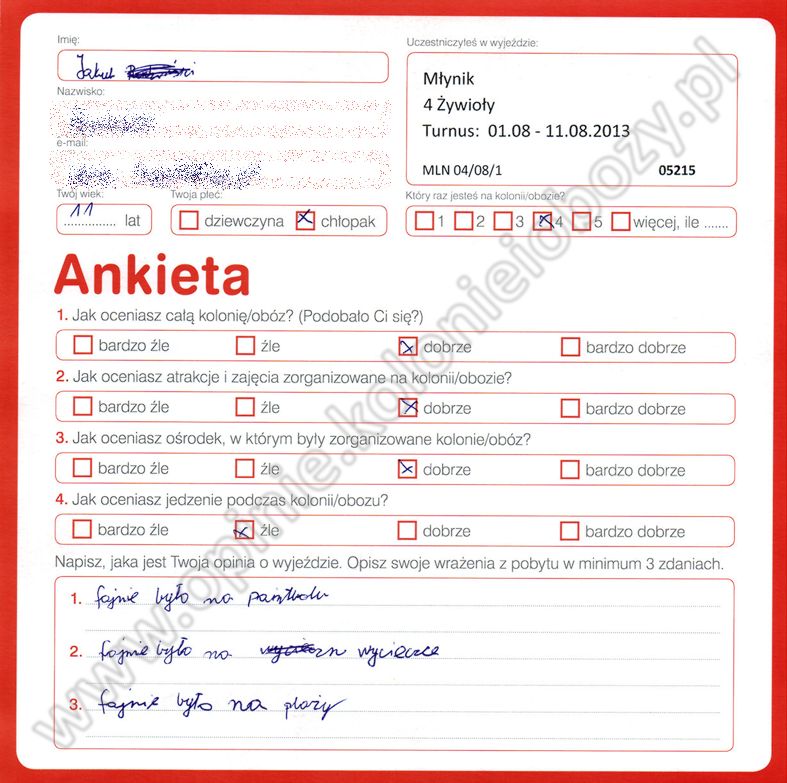 Imię:
Jakub
Nazwisko:
e-mail:
Twój wiek:
11 lat
Twoja płeć:
dziewczyna chłopak
Uczestniczyłeś w wyjeździe:
Młynik
4 Żywioły
Turnus: 01.08 - 11.08.2013
MLN 04/08/1 05215
Który raz jesteś na kolonii/obozie?
1 2 3 4 5 więcej, ile .......
Ankieta
1. Jak oceniasz całą kolonię/obóz? (Podobało Ci się?)
bardzo źle źle dobrze bardzo dobrze
2. Jak oceniasz atrakcje i zajęcia zorganizowane na kolonii/obozie?
bardzo źle źle dobrze bardzo dobrze
3. Jak oceniasz ośrodek, w którym były zorganizowane kolonie/obóz?
bardzo źle źle dobrze bardzo dobrze
4. Jak oceniasz jedzenie podczas kolonii/obozu?
bardzo źle źle dobrze bardzo dobrze
Napisz, jaka jest Twoja opinia o wyjeździe. Opisz swoje wrażenia z pobytu w minimum 3 zdaniach.
1. fajnie było na
2. fajnie było na wycieczce
3. fajnie było na plaży
www.opinie.kolonieiobozy.pl